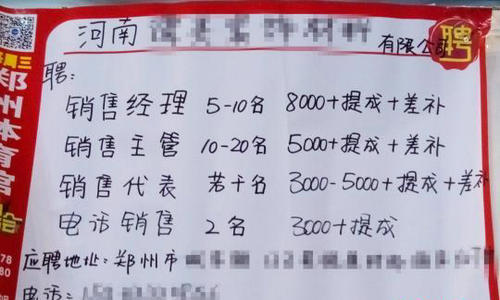 河南
有限公司
聘
聘:
销售经理 5-10名 8000+提成+差补
销售主管 10-20名 5000+提成+差补
销售代表 若干名 3000-5000+提成+差补
电话销售 2名 3000+提成
应聘地址:郑州市
电话:
周三
郑州体育官
78
80